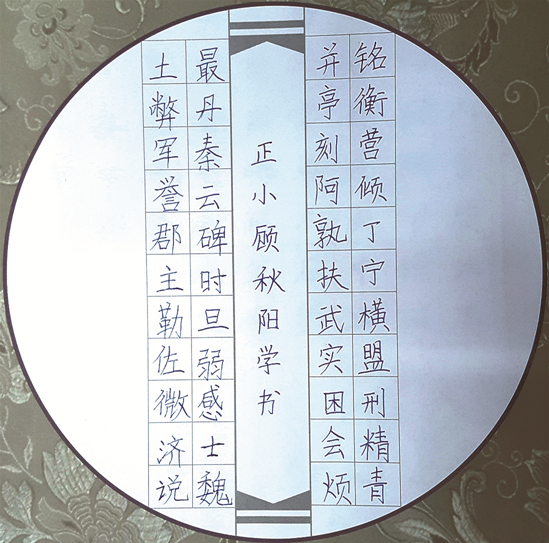 铭衡营倾丁宁横盟刑精青
并亭刻阿孰扶武实困会烦
正小顾秋阳学书
最丹秦云碑时旦弱感士魏
土弊军誉郡主勒佐微济说